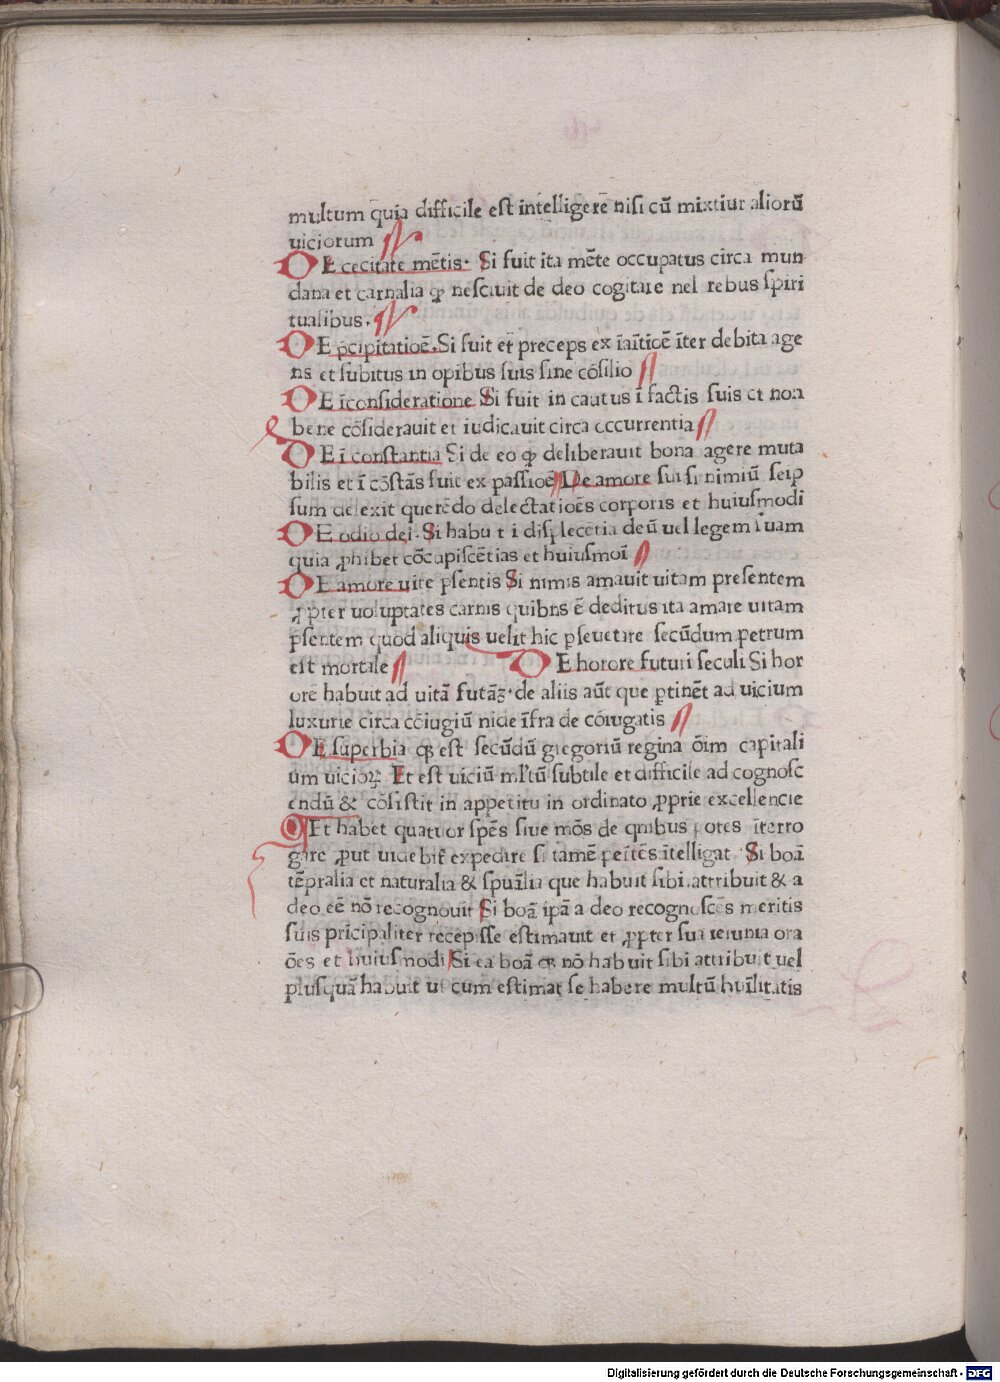 multum quia difficile est intelligere nisi cū mixtiur aliorū
uiciorum
DE cecitate mētis· Si fuit ita mēte occupatus circa mun
dana et carnalia ꝙ nesciuit de deo cogitare nel rebus spiri
tualibus.
DE p̄cipitatioē.Si fuit et preceps ex īaīticē īter debita age
ns et subitus in opibus suis sine cōsilio
DE īconsideratione Si fuit in cautus ī factis suis et non
bene cōsiderauit et iudicauit circa occurrentia
DE ī constantia Si de eo ꝙ deliberauit bona agere muta
bilis et ī cōstās fuit ex passioē De amore sui si nimiū seip
sum delexit querēdo delectatioēs corporis et huiusmodi
DE odio dei· Si habu t i displecetia deū uel legem suam
quia ꝓhibet cōcupiscētias et huiusmoī
DE amore uite p̄sentis Si nimis amauit uitam presentem
ꝓpter uoluptates carnis quibns ē deditus ita amare uitam
p̄sentem quod aliquis uelit hic p̱seuerare secūdum petrum
est mortale DE horore futuri seculi Si hor
orē habuit ad uitā futāꝫ·de aliis aūt que p̱tinēt ad uicium
luxurie circa cōiugiū nide īfra de cōiugatis
DE superbia ꝙ est secūdū gregoriū regina ōim capitali
um uicioꝝ Et est uiciū ml'tū subtile et difficile ad cognosc
endū & cōsistit in appetitu in ordinato ꝓprie excellencie
Et habet quatuor spēs siue mōs de qnibus potes īterro
gare ꝓut uidebit̄ expedire si tamē peītēs ītelligat Si boā
tēpralia et naturalia & spuālia que habuit sibi attribuit & a
deo eē nō recognouit Si boā ipā a deo recognoscēs meritis
suis prīcipaliter recepisse estimauit et ꝓpter sua ieiunia ora
ōes et huiusmodi Si ea boā ꝙ nō habuit sibi attribuit uel
plusquā habuit ut cum estimat se habere multū huīlitatis
Digitalisierung gefördert durch die Deutsche Forschungsgemeinschaft - DFG